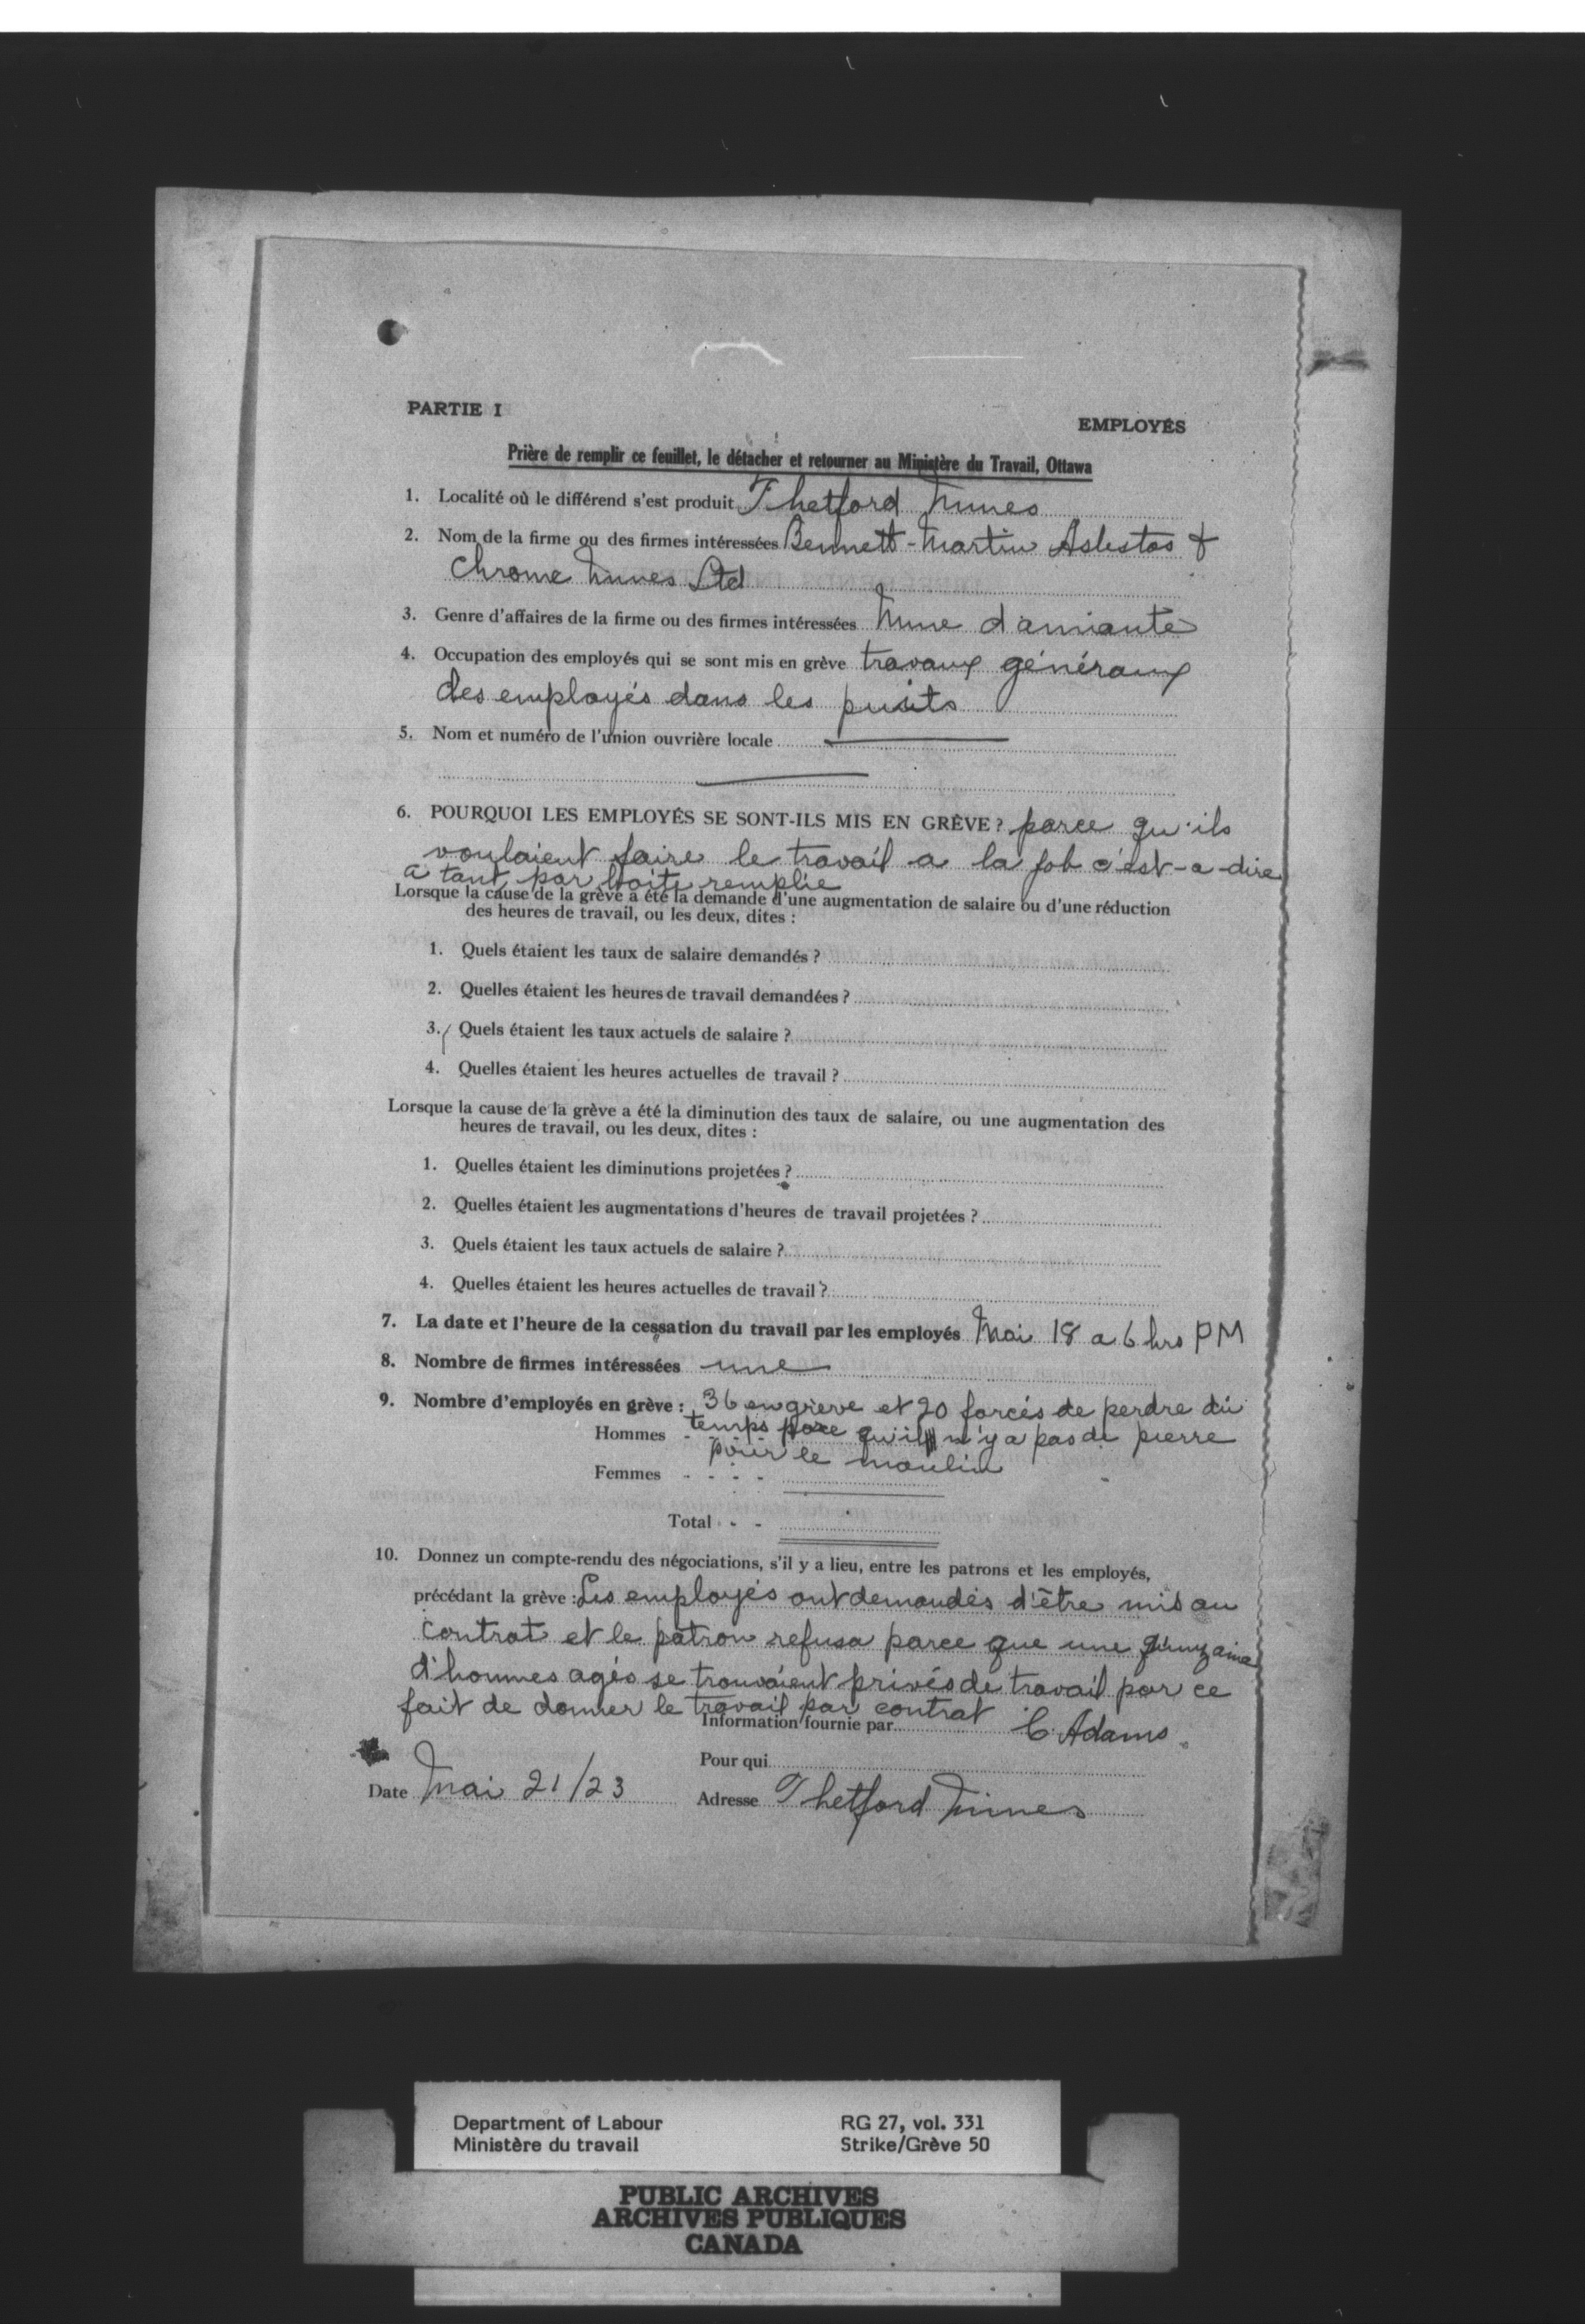 PARTIE I
EMPLOYÉS
Prière de remplir ce feuillet, le détacher et retourner au Ministère du Travail, Ottawa
1. Localité où le différend s'est produit Thetford Mines
2. Nom de la firme ou des firmes intéressées Bennett-Martin Asbestos &
Chrome Mines Ltd
3. Genre d'affaires de la firme ou des firmes intéressées Mine d'amiante
4. Occupation des employés qui se sont mis en grève travaux généraux
des employés dans les puits
5. Nom et numéro de l'union ouvrière locale
6. POURQUOI LES EMPLOYÉS SE SONT-ILS MIS EN GRÈVE? parce qu'ils
voulaient faire le travail a la job c'est-a-dire
a tant par boite remplie
Lorsque la cause de la grève a été la demande d'une augmentation de salaire ou d'une réduction
des heures de travail, ou les deux, dites :
1. Quels étaient les taux de salaire demandés ?
2. Quelles étaient les heures de travail demandées ?
3. Quels étaient les taux actuels de salaire ?
4. Quelles étaient les heures actuelles de travail ?
Lorsque la cause de la grève a été la diminution des taux de salaire, ou une augmentation des
heures de travail, ou les deux, dites :
1. Quelles étaient les diminutions projetées ?
2. Quelles étaient les augmentations d'heures de travail projetées ?
3. Quels étaient les taux actuels de salaire ?
4. Quelles étaient les heures actuelles de travail ?
7. La date et l'heure de la cessation du travail par les employés Mai 18 a 6 hrs PM
8. Nombre de firmes intéressées une
9. Nombre d'employés en grève : 36 en grève et 20 forcés de perdre du
Hommes - temps parce qu'il n'y a pas de pierre
pour le moulin
Femmes - - - -
Total - -
10. Donnez un compte-rendu des négociations, s'il y a lieu, entre les patrons et les employés,
précédant la grève : Les employés ont demandés d'être mis au
contrat et le patron refusa parce que une quinzaine
d'hommes agés se trouvaient privés de travail par ce
fait de donner le travail par contrat
Information fournie par C. Adams.
Pour qui
Date Mai 21/23 Adresse Thetford Mines
Department of Labour RG 27, vol. 331
Ministère du travail Strike/Grève 50
PUBLIC ARCHIVES
ARCHIVES PUBLIQUES
CANADA